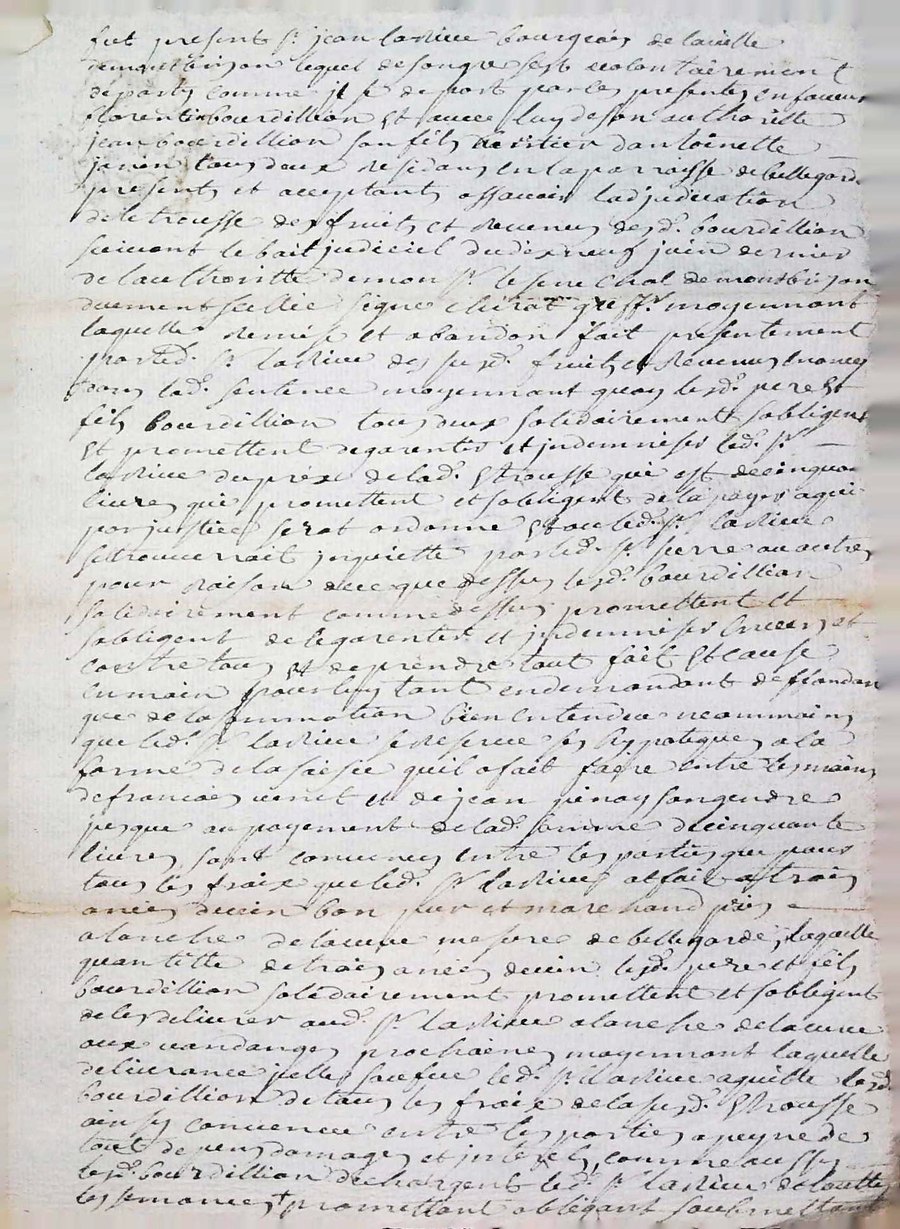 fut present sr. jean lariue bourgeois de la uille
de montbrison lequel de son gre sest uolontairement
departy comme il se depart par les presentes en faueur
florentin bourdillion Et auec luy de son authoritte
jean bourdillion son fils heritier dantoinette
janin tous deux residans en la parroisse de bellegarde
presents et acceptant assauoir ladjudication
de letrousse des fruits et reuenus desd. bourdillion
suiuant le bail judiciel du dix neuf juin dernier
de lauthoritte de mon sr. le senechal de montbrison
duement sellée signe chirat greffr. moyennant
laquelle remise et abandon fait presentement
par led. sr. lariue des susd. fruits et Reuenus enonces
dans lad. sentence moyennant quoy lesd. pere et
fils bourdillion tous deux solidairement sobligent
Et promettent de garentir et jndemniser led. sr.
lariue du prix de lad. Etrousse qui est de cinquante
liures qui promettent et sobligent de la payer a qui
par justice serat ordonne Et ou led. sr. lariue
se trouuerait jnquiette par led. sr. serre ou autres
pour raison de ce que dessus lesd. bourdillion
solidairement comme dessus promettent et
sobligent de le garentir et jndemniser enuers et
contre tous Et de prendre tout fait Et cause
en main pour luy tant en demandant deffandant
que de la sommation bien entendeu neammoins
que led. sr. lariue se reserue ses hypoteques a la
forme de la saisie quil a fait faire entre les mains
de francois uenet et de jean pinay son gendre
jusque au payement de lad. somme de cinquante
liures, sont conuenus entre les parties que pour
tous les fraix que led. sr. lariue a fait a trois
anées de uin bon pur et marchand pris
a lanche de la cuue mesure de bellegarde, laquelle
quantitte de trois anées de uin lesd. pere et fils
bourdillion solidairement promettent et sobligent
de les deliurer aud. sr. lariue a lanche de la cuue
aux uandanges prochaines moyennant laquelle
deliurance led. sr. lariue a quitte lesd.
bourdillion de tous les fraix de la susd. Etrousse
ainsy conuenu entre les parties a peyne de
tout depens domages et jnterets, comme aussy
lesd. bourdillion dechargent led. sr. lariue de toutes
les semances promettant obligeant soubmettant